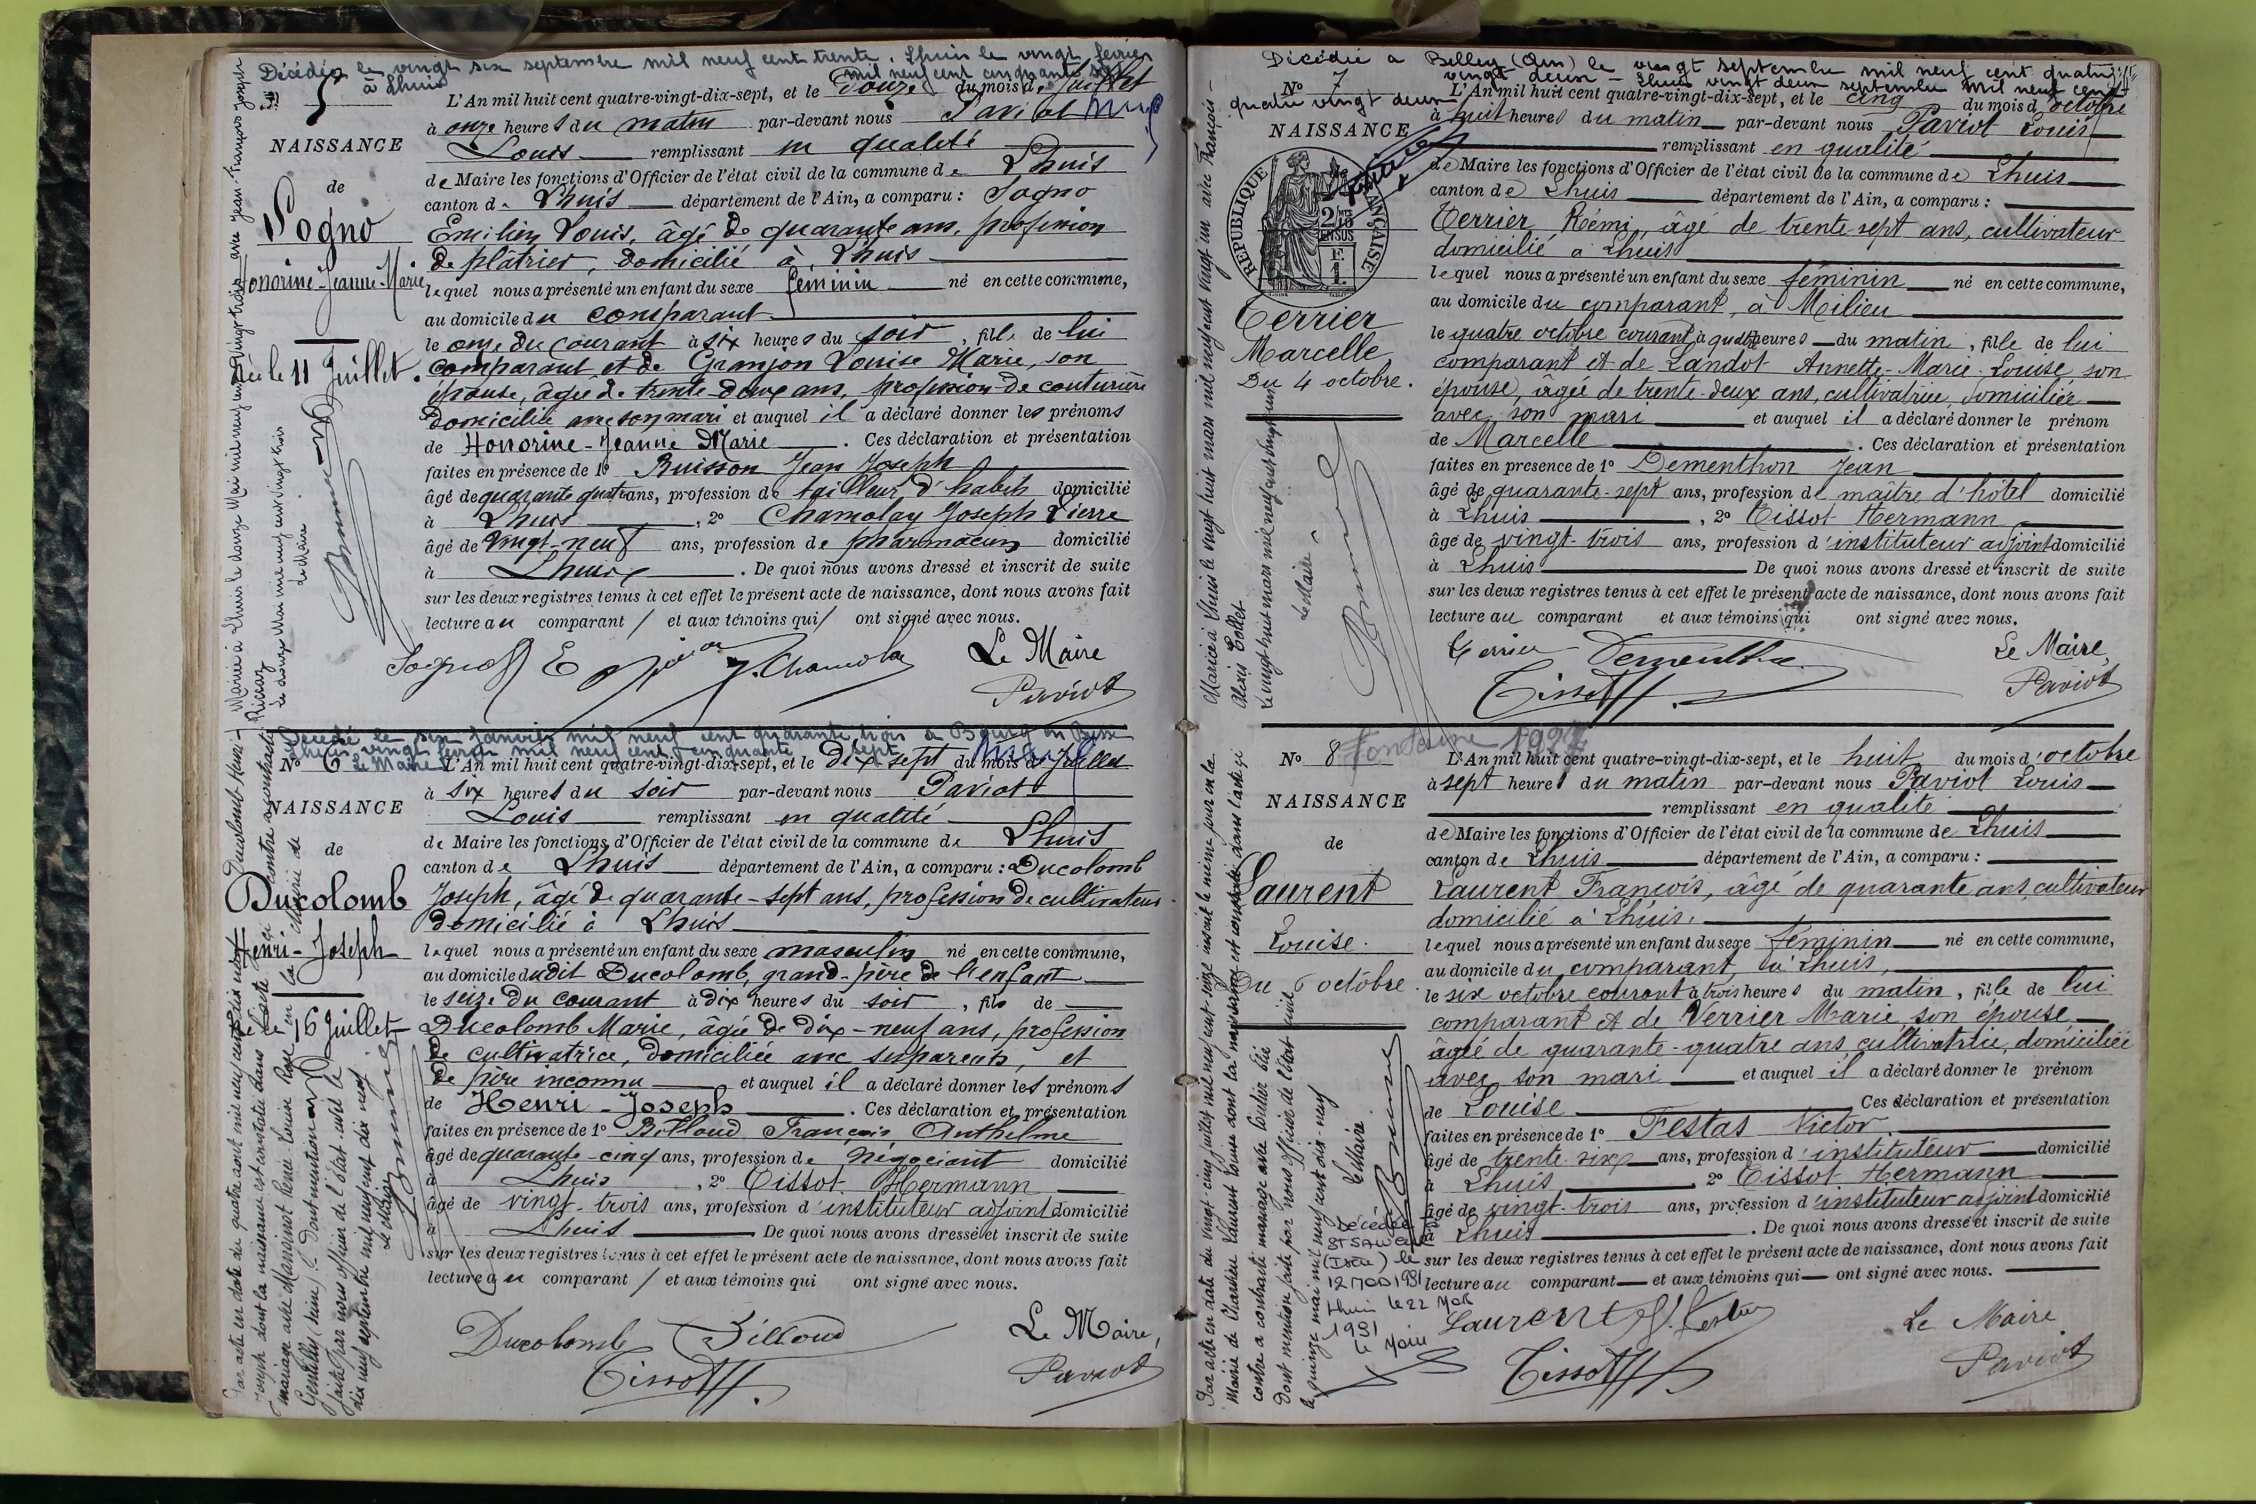 Décédée le vingt six septembre mil neuf cent trente. Lhuis le vingt février
mil neuf cent cinquante sept
à Lhuis
No 5
NAISSANCE
de
Sogno
Honorine-Jeanne-Marie
Née le 11 Juillet.
L'An mil huit cent quatre-vingt-dix-sept, et le Douze du mois de Juillet
à onze heures du matin par-devant nous Paviot
Louis remplissant en qualité
de Maire les fonctions d'Officier de l'état civil de la commune de Lhuis
canton de Lhuis département de l'Ain, a comparu : Sogno
Emilien Louis, âgé de quarante ans, profession
de plâtrier, domicilié à Lhuis
lequel nous a présenté un enfant du sexe féminin né en cette commune,
au domicile du comparant
le onze du courant à six heures du soir, fille de lui
comparant et de Granjon Louise Marie, son
épouse, âgée de trente-deux ans, profession de couturière
domiciliée avec son mari et auquel il a déclaré donner les prénoms
de Honorine-Jeanne Marie. Ces déclaration et présentation
faites en présence de 1o Buisson Jean Joseph
âgé de quarante quatre ans, profession de tailleur d'habits domicilié
à Lhuis, 2o Chamolay Joseph Pierre
âgé de vingt-neuf ans, profession de pharmacien domicilié
à Lhuis. De quoi nous avons dressé et inscrit de suite
sur les deux registres tenus à cet effet le présent acte de naissance, dont nous avons fait
lecture au comparant / et aux témoins qui / ont signé avec nous.
Sogno E J. Chamolay Le Maire
Paviot
Mariée à Lhuis le douze Mai mil neuf cent vingt trois avec Jean-François Joseph
Le douze Mai mil neuf cent vingt trois
Le Maire
Décédé le six janvier mil neuf cent quarante trois à Bourg en Bresse
Lhuis vingt février mil neuf cent cinquante sept
Le Maire
No 6
NAISSANCE
de
Ducolomb
Henri-Joseph
Le 16 Juillet
L'An mil huit cent quatre-vingt-dix-sept, et le dix sept du mois de Juillet
à six heures du soir par-devant nous Paviot
Louis remplissant en qualité
de Maire les fonctions d'Officier de l'état civil de la commune de Lhuis
canton de Lhuis département de l'Ain, a comparu : Ducolomb
Joseph, âgé de quarante-sept ans, profession de cultivateur
domicilié à Lhuis
lequel nous a présenté un enfant du sexe masculin né en cette commune,
au domicile dudit Ducolomb, grand-père de l'enfant
le seize du courant à dix heures du soir, fils de
Ducolomb Marie, âgée de dix-neuf ans, profession
de cultivatrice, domiciliée avec ses parents, et
de père inconnu et auquel il a déclaré donner les prénoms
de Henri-Joseph. Ces déclaration et présentation
faites en présence de 1o Billoud François Anthelme
âgé de quarante-cinq ans, profession de négociant domicilié
à Lhuis, 2o Tissot Hermann
âgé de vingt-trois ans, profession d'instituteur adjoint domicilié
à Lhuis De quoi nous avons dressé et inscrit de suite
sur les deux registres tenus à cet effet le présent acte de naissance, dont nous avons fait
lecture au comparant / et aux témoins qui ont signé avec nous.
Ducolomb Billoud Le Maire,
Tissot Paviot
Par acte en date du quatre août mil neuf cent dix neuf
Joseph dont la naissance est constatée dans l'acte ci contre a contracté
mariage avec Manoinot Renée Louise Rose en la Mairie de
Gentilly (Seine). Dont mention
faite par nous officier de l'état-civil le
dix neuf septembre mil neuf cent dix neuf
Le Maire
Décédée à Belley (Ain) le vingt septembre mil neuf cent quatre
vingt deux - Lhuis vingt deux septembre mil neuf cent
quatre vingt deux
No 7
NAISSANCE
RÉPUBLIQUE FRANÇAISE
Terrier
Marcelle
Du 4 octobre.
L'An mil huit cent quatre-vingt-dix-sept, et le cinq du mois d'octobre
à huit heures du matin par-devant nous Paviot Louis
remplissant en qualité
de Maire les fonctions d'Officier de l'état civil de la commune de Lhuis
canton de Lhuis département de l'Ain, a comparu :
Terrier Rémi, âgé de trente sept ans, cultivateur
domicilié à Lhuis
lequel nous a présenté un enfant du sexe féminin né en cette commune,
au domicile du comparant, à Milieu
le quatre octobre courant, à quatre heures du matin, fille de lui
comparant et de Landot Annette-Marie-Louise, son
épouse, âgée de trente-deux ans, cultivatrice, domiciliée
avec son mari et auquel il a déclaré donner le prénom
de Marcelle. Ces déclaration et présentation
faites en présence de 1o Dementhon Jean
âgé de quarante-sept ans, profession de maître d'hôtel domicilié
à Lhuis, 2o Tissot Hermann
âgé de vingt-trois ans, profession d'instituteur adjoint domicilié
à Lhuis De quoi nous avons dressé et inscrit de suite
sur les deux registres tenus à cet effet le présent acte de naissance, dont nous avons fait
lecture au comparant et aux témoins qui ont signé avec nous.
Terrier Dementhon Le Maire,
Tissot Paviot
Mariée à Lhuis le vingt huit mars mil neuf cent vingt un avec François-
Alexis Collet
Le vingt huit mars mil neuf cent vingt un
Le Maire
No 8
Fontaine
NAISSANCE
de
Laurent
Louise.
Du 6 octobre.
L'An mil huit cent quatre-vingt-dix-sept, et le huit du mois d'octobre
à sept heures du matin par-devant nous Paviot Louis
remplissant en qualité
de Maire les fonctions d'Officier de l'état civil de la commune de Lhuis
canton de Lhuis département de l'Ain, a comparu :
Laurent François, âgé de quarante ans, cultivateur
domicilié à Lhuis,
lequel nous a présenté un enfant du sexe féminin né en cette commune,
au domicile du comparant, à Lhuis,
le six octobre courant à trois heures du matin, fille de lui
comparant et de Verrier Marie, son épouse
âgée de quarante-quatre ans, cultivatrice, domiciliée
avec son mari et auquel il a déclaré donner le prénom
de Louise Ces déclaration et présentation
faites en présence de 1o Festas Victor
âgé de trente-six ans, profession d'instituteur domicilié
à Lhuis, 2o Tissot Hermann
âgé de vingt-trois ans, profession d'instituteur adjoint domicilié
à Lhuis. De quoi nous avons dressé et inscrit de suite
sur les deux registres tenus à cet effet le présent acte de naissance, dont nous avons fait
lecture au comparant et aux témoins qui ont signé avec nous.
Laurent Festas Le Maire
Tissot Paviot
Par acte en date du vingt-cinq juillet mil neuf cent
Mairie de Laurent Louise dont la naissance est constatée dans l'acte ci
contre a contracté mariage avec
Dont mention faite par nous officier de l'état civil
le quinze mai mil neuf cent dix-neuf
Le Maire
Décédée
(Isère) le
12 1981
Lhuis le 22
1981
Le Maire